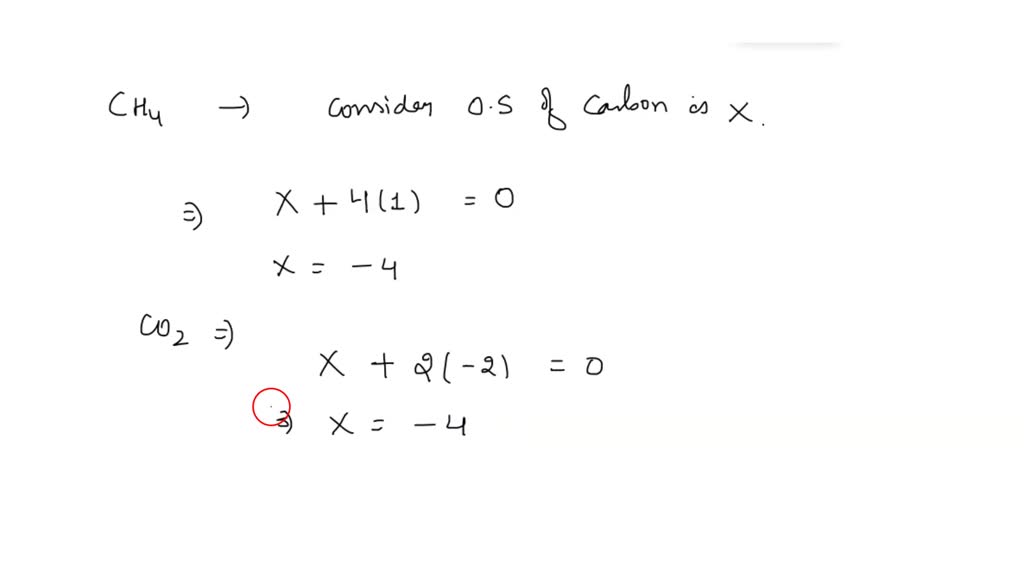 CH₄ → Consider O.S of Carbon is X.
⇒ X + 4(1) = 0
X = -4
CO₂ ⇒
X + 2(-2) = 0
⇒ X = -4